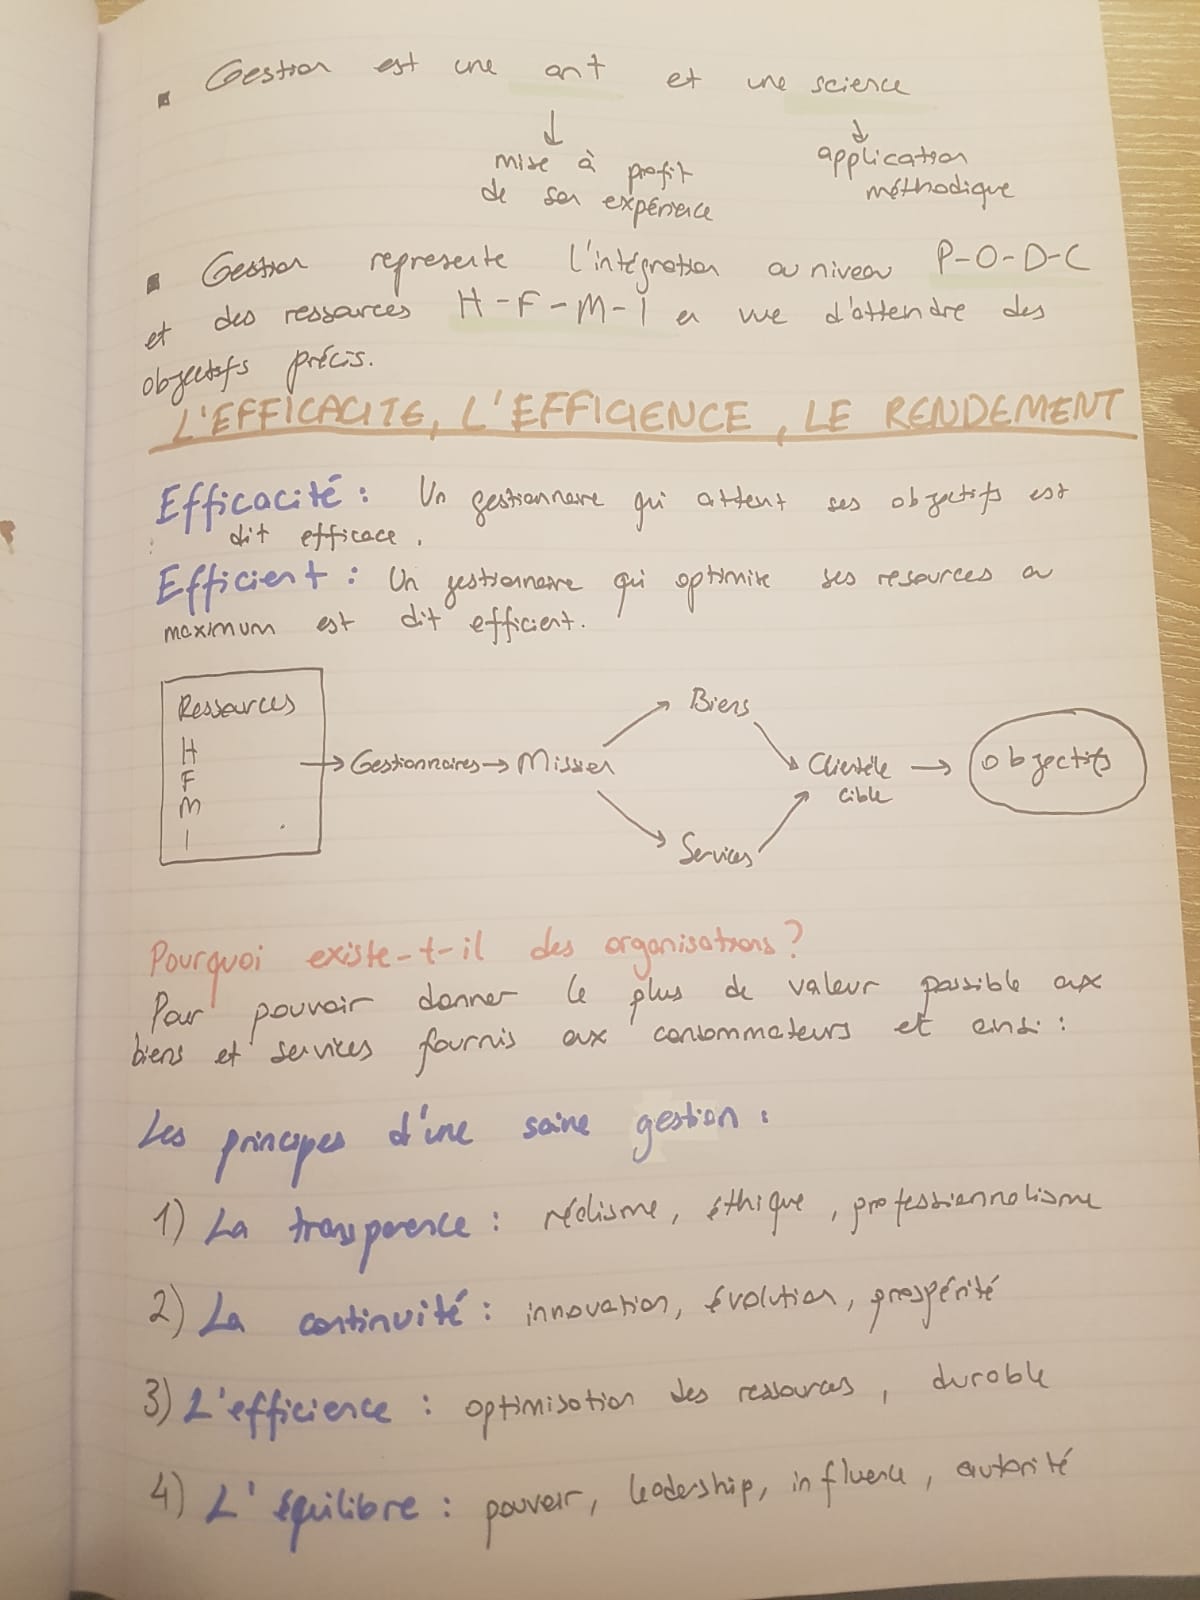 ▪ Gestion est une art et une science
↓ ↓
mise à profit application
de son expérience méthodique
▪ Gestion represente l'intégration au niveau P-O-D-C
et des ressources H-F-M-I en vue d'attendre des
objectifs précis.
L'EFFICACITE, L'EFFICIENCE, LE RENDEMENT
Efficacité : Un gestionnaire qui attent ses objectifs est
dit efficace.
Efficient : Un gestionnaire qui optimise ses resources au
maximum est dit efficient.
Ressources
H
F
M
I
→ Gestionnaires → Mission
Biens
Services
Clientèle
cible
→ objectifs
Pourquoi existe-t-il des organisations?
Pour pouvoir donner le plus de valeur possible aux
biens et services fournis aux consommateurs et ainsi :
Les principes d'une saine gestion :
1) La transparence : réalisme, éthique, professionnalisme
2) La continuité : innovation, évolution, prospérité
3) L'efficience : optimisation des ressources, durable
4) L'équilibre : pouvoir, leadership, influence, autorité